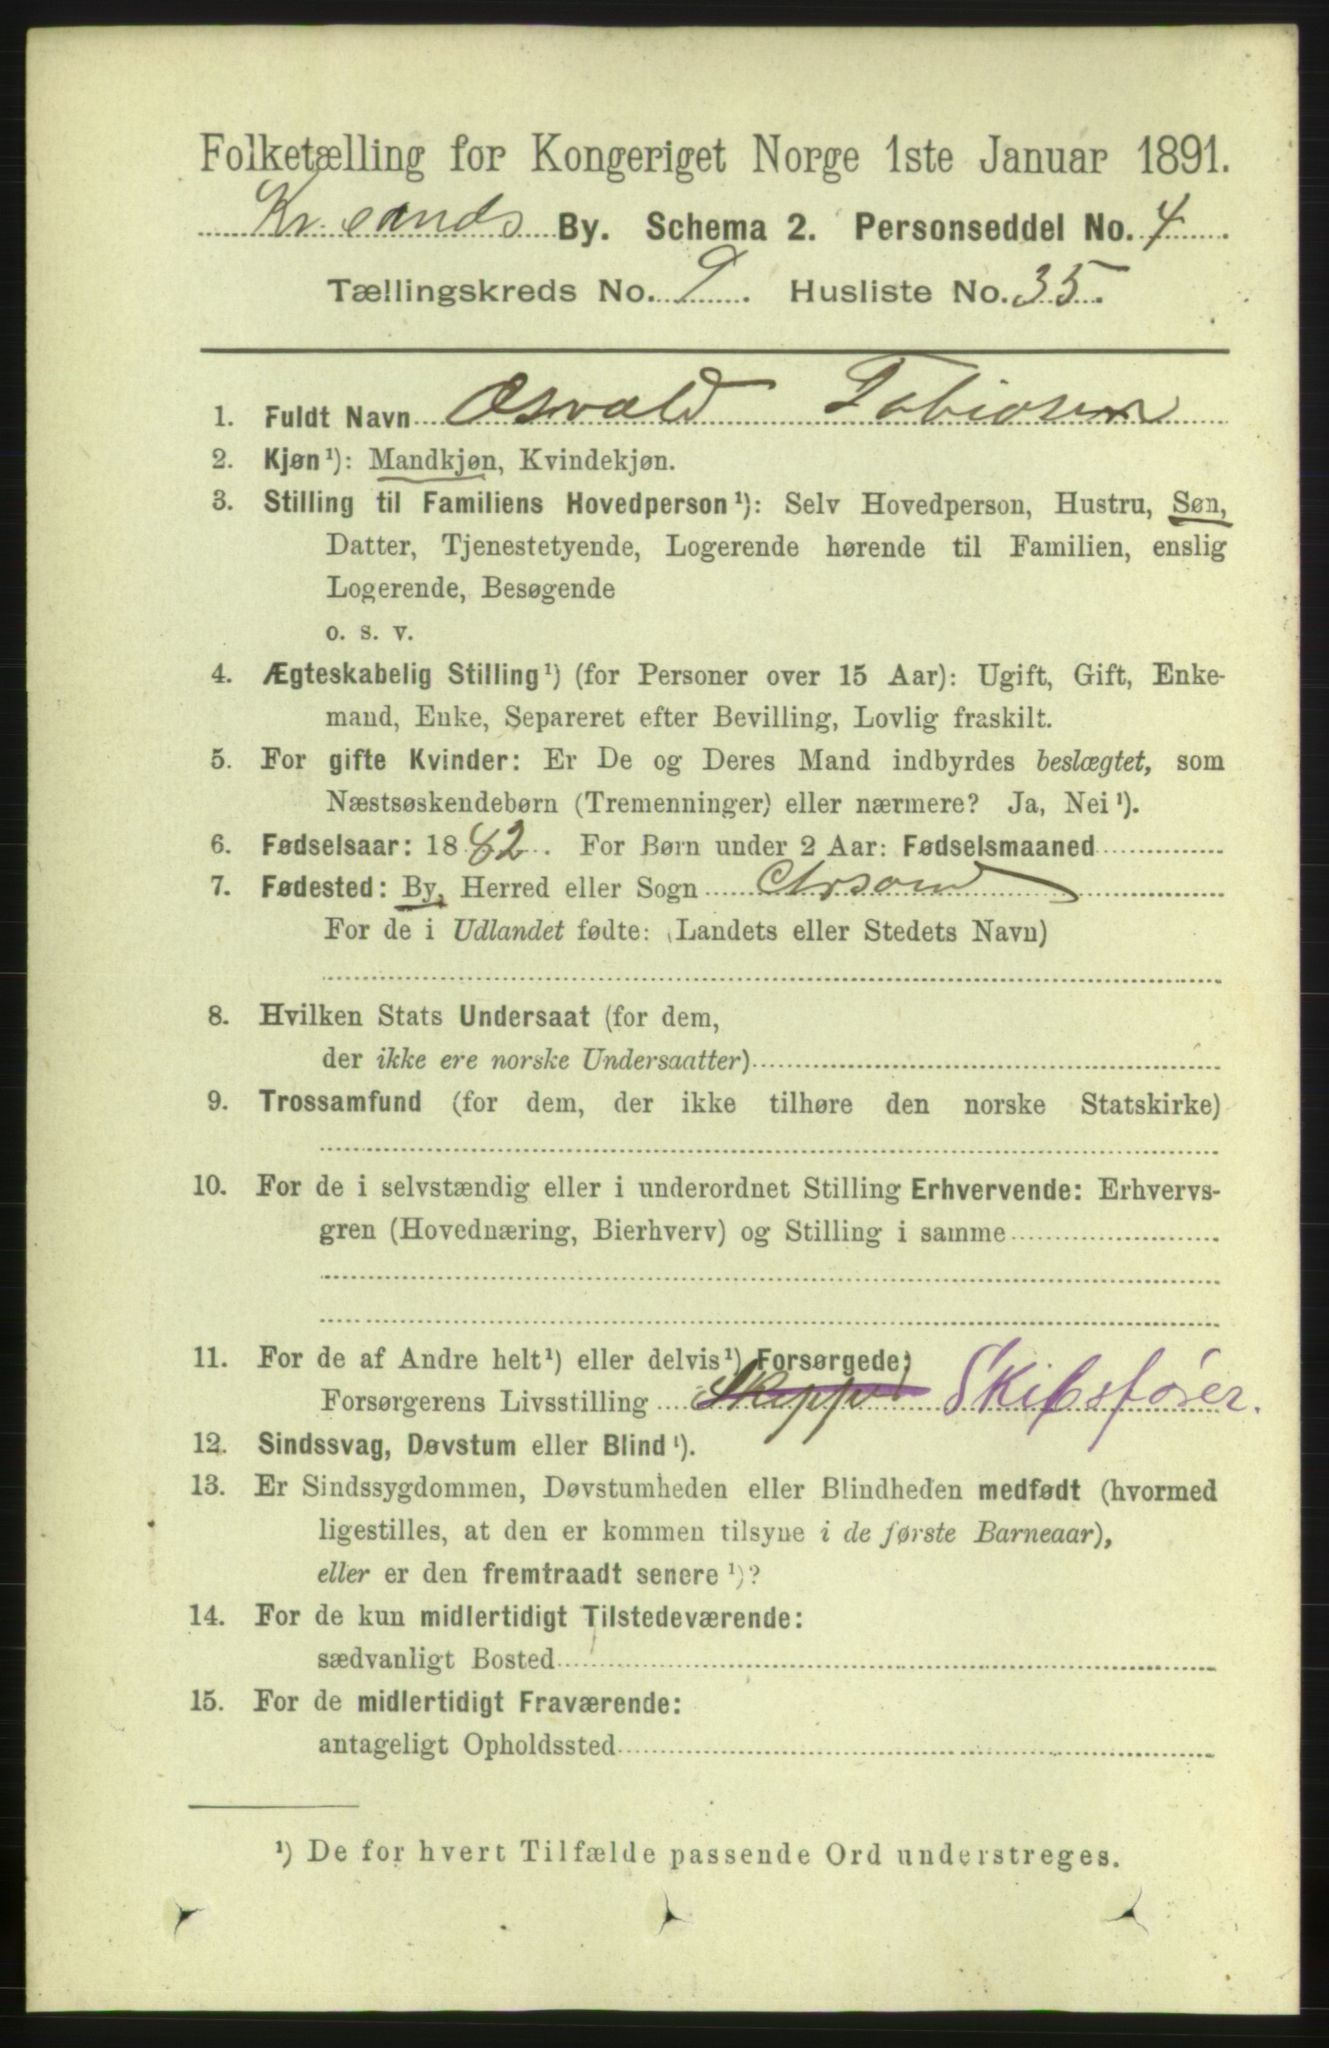 Folketælling for Kongeriget Norge 1ste Januar 1891.
Kr.sands By. Schema 2. Personseddel No. 4
Tællingskreds No. 9. Husliste No. 35.
1. Fuldt Navn Osvald Tobiasen
2. Kjøn¹): Mandkjøn, Kvindekjøn.
3. Stilling til Familiens Hovedperson¹): Selv Hovedperson, Hustru, Søn,
Datter, Tjenestetyende, Logerende hørende til Familien, enslig
Logerende, Besøgende
o. s. v.
4. Ægteskabelig Stilling¹) (for Personer over 15 Aar): Ugift, Gift, Enke-
mand, Enke, Separeret efter Bevilling, Lovlig fraskilt.
5. For gifte Kvinder: Er De og Deres Mand indbyrdes beslægtet, som
Næstsøskendebørn (Tremenninger) eller nærmere? Ja, Nei¹).
6. Fødselsaar: 1882. For Børn under 2 Aar: Fødselsmaaned
7. Fødested: By, Herred eller Sogn
For de i Udlandet fødte: (Landets eller Stedets Navn)
8. Hvilken Stats Undersaat (for dem,
der ikke ere norske Undersaatter)
9. Trossamfund (for dem, der ikke tilhøre den norske Statskirke)
10. For de i selvstændig eller i underordnet Stilling Erhvervende: Erhvervs-
gren (Hovednæring, Bierhverv) og Stilling i samme
11. For de af Andre helt¹) eller delvis¹) Forsørgede;
Forsørgerens Livsstilling Skipper Skibsfører.
12. Sindssvag, Døvstum eller Blind¹).
13. Er Sindssygdommen, Døvstumheden eller Blindheden medfødt (hvormed
ligestilles, at den er kommen tilsyne i de første Barneaar),
eller er den fremtraadt senere¹)?
14. For de kun midlertidigt Tilstedeværende:
sædvanligt Bosted
15. For de midlertidigt Fraværende:
antageligt Opholdssted
¹) De for hvert Tilfælde passende Ord understreges.